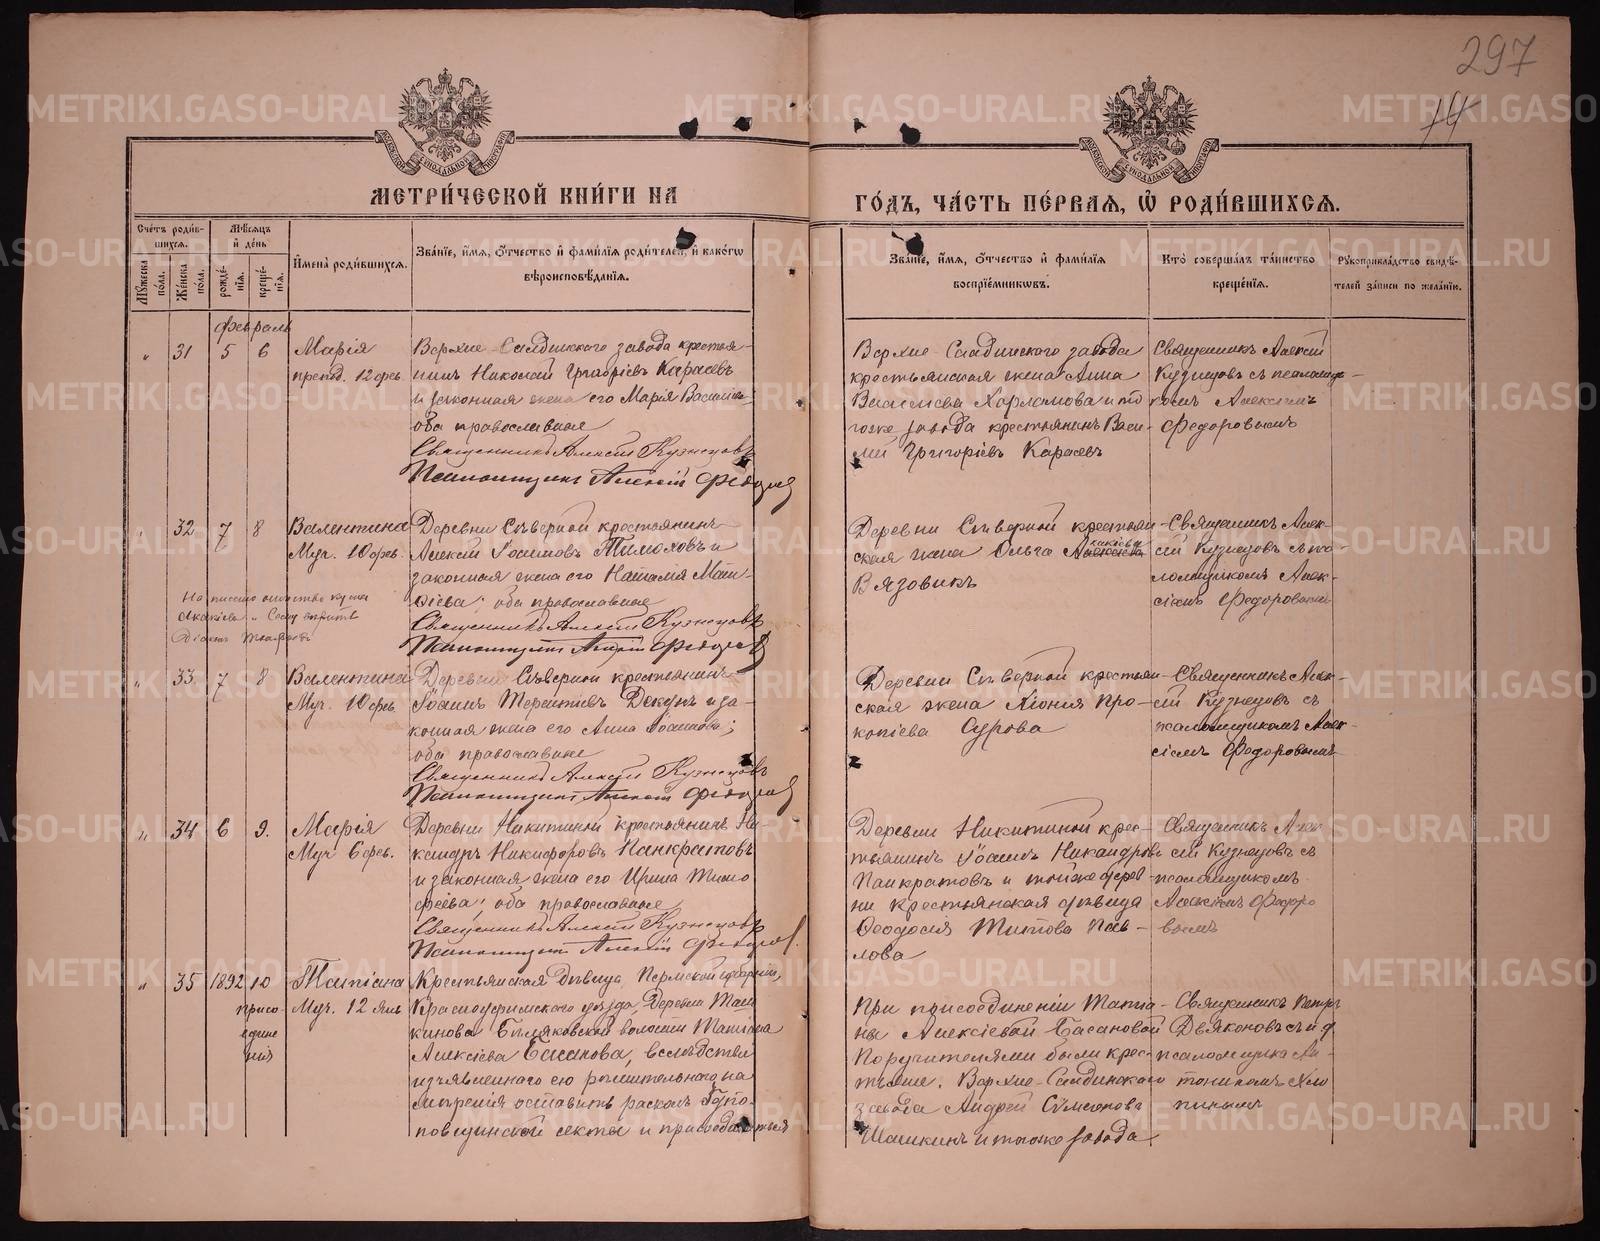 297
14
МЕТРИ́ЧЕСКОЙ КНИ́ГИ НА
ГО́ДЪ, ЧА́СТЬ ПЕ́РВАЯ, Ѡ҆ РОДИ́ВШИХСЯ.
Сче́тъ роди́вшихся.
Мѣ́сяцъ и҆ де́нь
Му́жеска по́ла.
Же́нска по́ла.
рожде́нїя.
креще́нїя.
И҆мена̀ роди́вшихся.
Зва́нїе, и҆́мя, ѻ҆́тчество и҆ фами́лїя роди́телей, и҆ како́гѡ
вѣроисповѣ́данїя.
Зва́нїе, и҆́мя, ѻ҆́тчество и҆ фами́лїя
воспрїе́мникѡвъ.
Кто̀ соверша́лъ та́инство
креще́нїя.
Рꙋкоприкла́дство свидѣ́телей за́писи по жела́нїю.
февраль
31 5 6
Марія
препод. 12 фев.
Верхне-Салдинскаго завода крестья-
нинъ Николай Григоріевъ Карасевъ
и законная жена его Марія Василіева
оба православные
Священникъ Алексій Кузнецовъ
Псаломщикъ Алексій Федоровъ
Верхне-Салдинскаго завода
крестьянская жена Анна
Василіева Харламова и то
гоже завода крестьянинъ Васи-
лій Григоріевъ Карасевъ
Священникъ Алексій
Кузнецовъ съ псаломщи-
комъ Алексіемъ
Федоровымъ
32 7 8
Валентина
Муч. 10 фев.
Деревни Сѣверной крестьянинъ
Алексій Іоанновъ и
законная жена его Наталія Мат-
ѳіева; оба православные
Священникъ Алексій Кузнецовъ
Псаломщикъ Алексій Федоровъ
Деревни Сѣверной крестьян-
ская жена Ольга Алексіева
Вязовикъ
Священникъ Алек-
сій Кузнецовъ съ пса-
ломщикомъ Алек-
сіемъ Федоровымъ
33 7 8
Валентина
Муч. 10 фев.
Деревни Сѣверной крестьянинъ
Іоаннъ Терентіевъ Декунъ и за-
конная жена его Анна Іоаннова;
оба православные
Священникъ Алексій Кузнецовъ
Псаломщикъ Алексій Федоровъ
Деревни Сѣверной крестьян-
ская жена Хіонія Про-
копіева Сурова
Священникъ Алек-
сій Кузнецовъ съ
псаломщикомъ Алек-
сіемъ Федоровымъ
34 6 9.
Марія
Муч. 6 фев.
Деревни Никитиной крестьянинъ Ни-
кандръ Никифоровъ Панкратовъ
и законная жена его Ирина Тимо
феева; оба православные
Священникъ Алексій Кузнецовъ
Псаломщикъ Алексій Федоровъ
Деревни Никитиной крес-
тьянинъ Іоаннъ Никандровъ
Панкратовъ и тойже дерев-
ни крестьянская дѣвица
Ѳеодосія Титова Пав-
лова
Священникъ Алек
сій Кузнецовъ съ
псаломщикомъ
Алексіемъ Федоро
вымъ
35 1892 10
присо-
едине
нія
Татіана
Муч. 12 янв
Крестьянская дѣвица, Пермской губерніи,
Красноуфимскаго уѣзда, Деревни
киновa волости Татіана
Алексіева Басанова, вслѣдствіе
изъявленнаго ею рѣшительнаго на
мѣренія оставить расколъ Бѣгло-
поповщинской секты и присоединиться
При присоединеніи Татіа-
ны Алексіевой Басановой
Поручителями были крес-
тьяне. Верхне-Салдинскаго
завода Андрей Симеоновъ
Шашкинъ и тогоже завода
Священникъ Петръ
Дьяконовъ съ и. д.
псаломщика Ан-
тониномъ Хло
пинымъ
METRIKI.GASO-URAL.RU